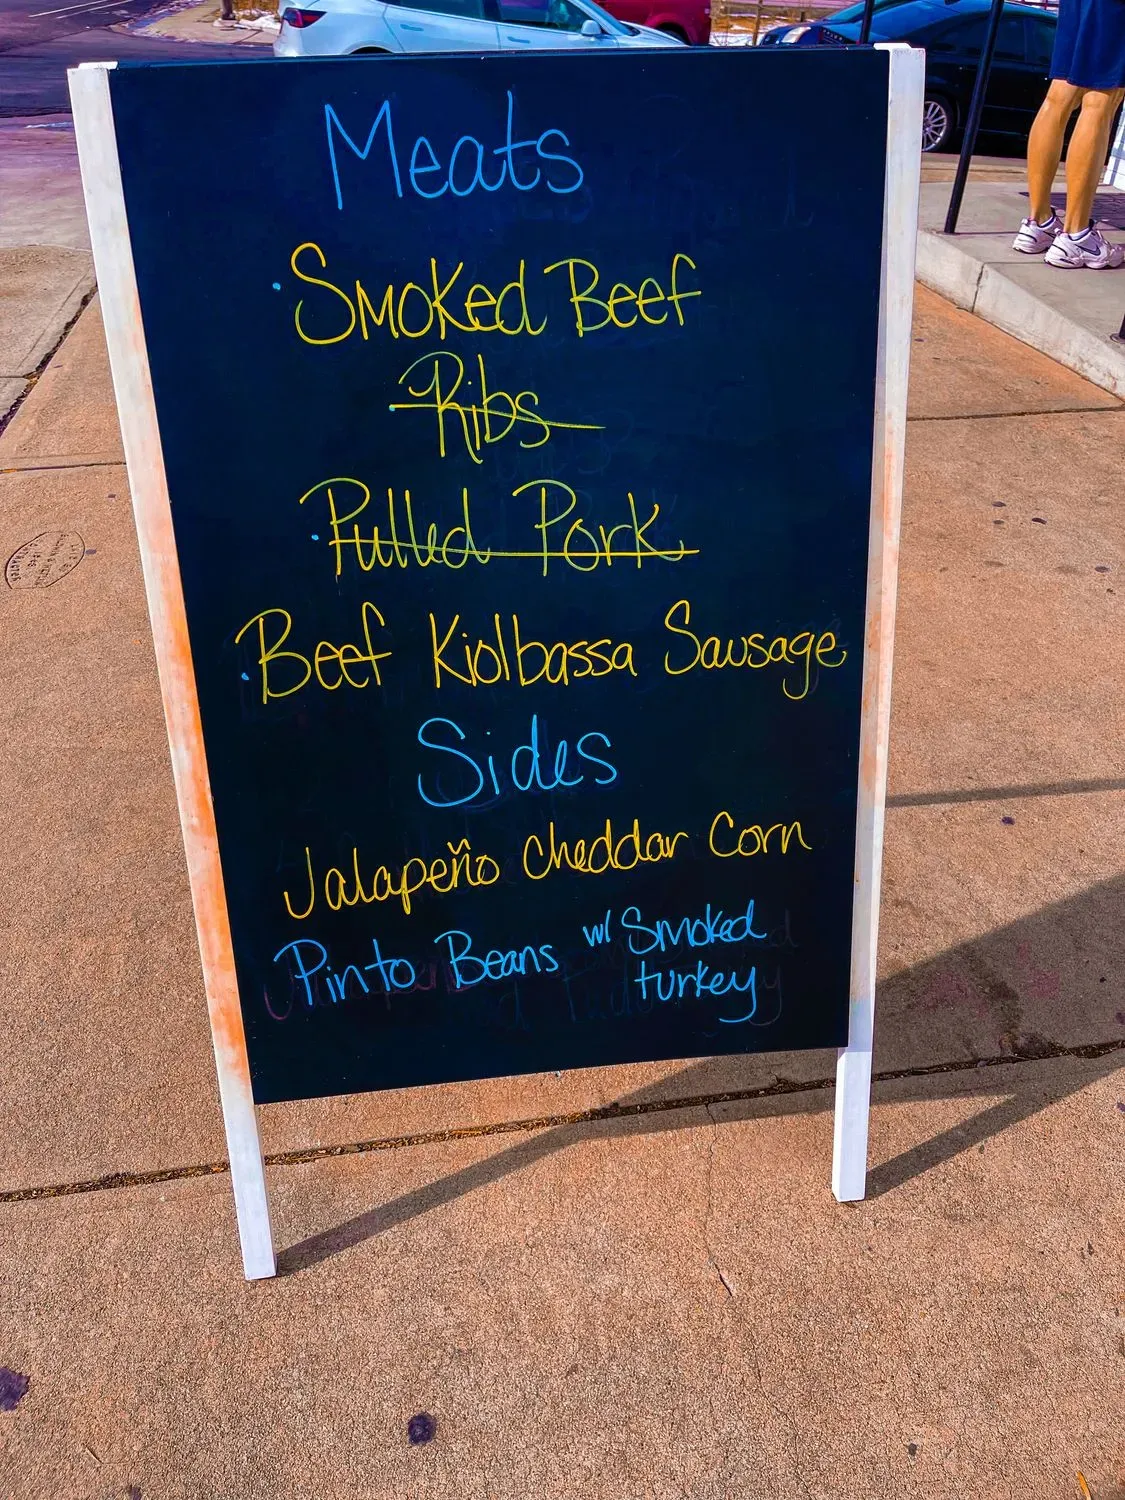 Meats
· Smoked Beef
· Ribs
· Pulled Pork
· Beef Kiolbassa Sausage
Sides
Jalapeño cheddar Corn
Pinto Beans w/ Smoked
turkey